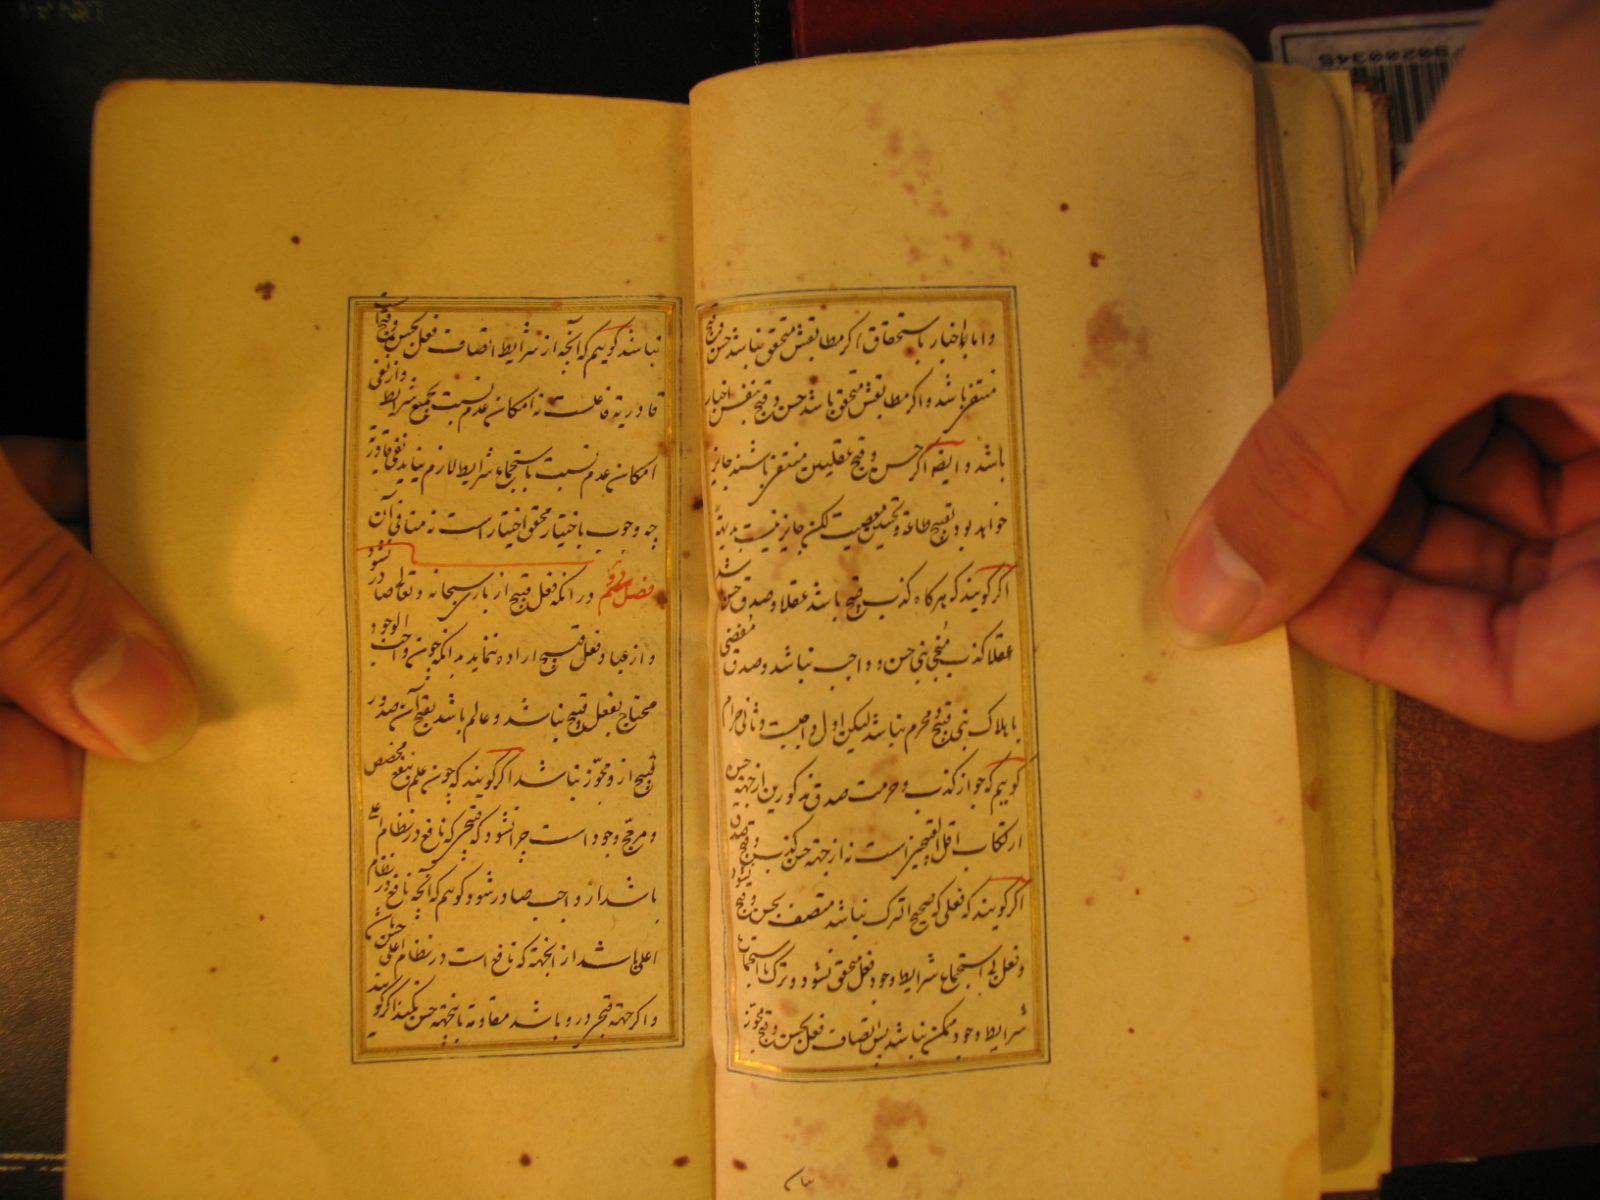 و اما باخبار باستحقاق اگر مطابقش متحقق نباشد حسن و قبح
منتفی باشد و اگر مطابقش متحقق باشد حسن و قبح بنفس اخبار
باشد و ایضا اگر حسن و قبح عقلیین منتفی باشند جایز
خواهد بود تقبیح طاعة و تحسین معصیت لکن جایز نیست بدیهة
اگر گویند که هرگاه کذب قبیح باشد عقلا و صدق حسن باشد
عقلا کذب منجی نبی حسن و واجب نباشد و صدق مفضی
باهلاک نبی قبیح و محرم نباشد لیکن اول واجبست و ثانی حرام
گوییم که جواز کذب و حرمت صدق مذکورین از جهة
ارتکاب اقل القبیحین است نه از جهة حسن کذب و قبح صدق
اگر گویند که فعلی که صحیح الترک نباشد متصف بحسن و قبح نشود
و فعل بی استجماع شرایط وجود فعل متحقق نشود و ترک با استجماع
شرایط وجود ممکن نباشد پس اتصاف فعل بحسن و قبح مجوز
بیان
نباشد گوییم که آنچه از شرایط اتصاف فعل بحسن و قبح است
قادریة فاعلست نه امکان عدم نسبت بجمیع شرایط و از نفی
امکان عدم نسبت باستجماع شرایط لازم نیاید نفی قادریة
چه وجوب باختیار محقق اختیار است نه منافی آن
فصل دوم در آنکه فعل قبیح از باری سبحانه و تعالی صادر نشود
و از عباد فعل قبیح اراده ننماید بدانکه چون واجب الوجود
محتاج بفعل قبیح نباشد و عالم باشد بقبح آن صدور
قبیح ازو مجوز نباشد اگر گویند که چون علم بنفع مخصص
و مرجح وجود است چرا نشود که قبیحی که نافع در نظام اعلی
باشد از واجب صادر شود گوییم که آنچه نافع در نظام
اعلی باشد از آنجهة که نافع است در نظام اعلی حسن باشد
و اگر جهة قبحی درو باشد مقاومة با جهة حسن نکند اگر گویند